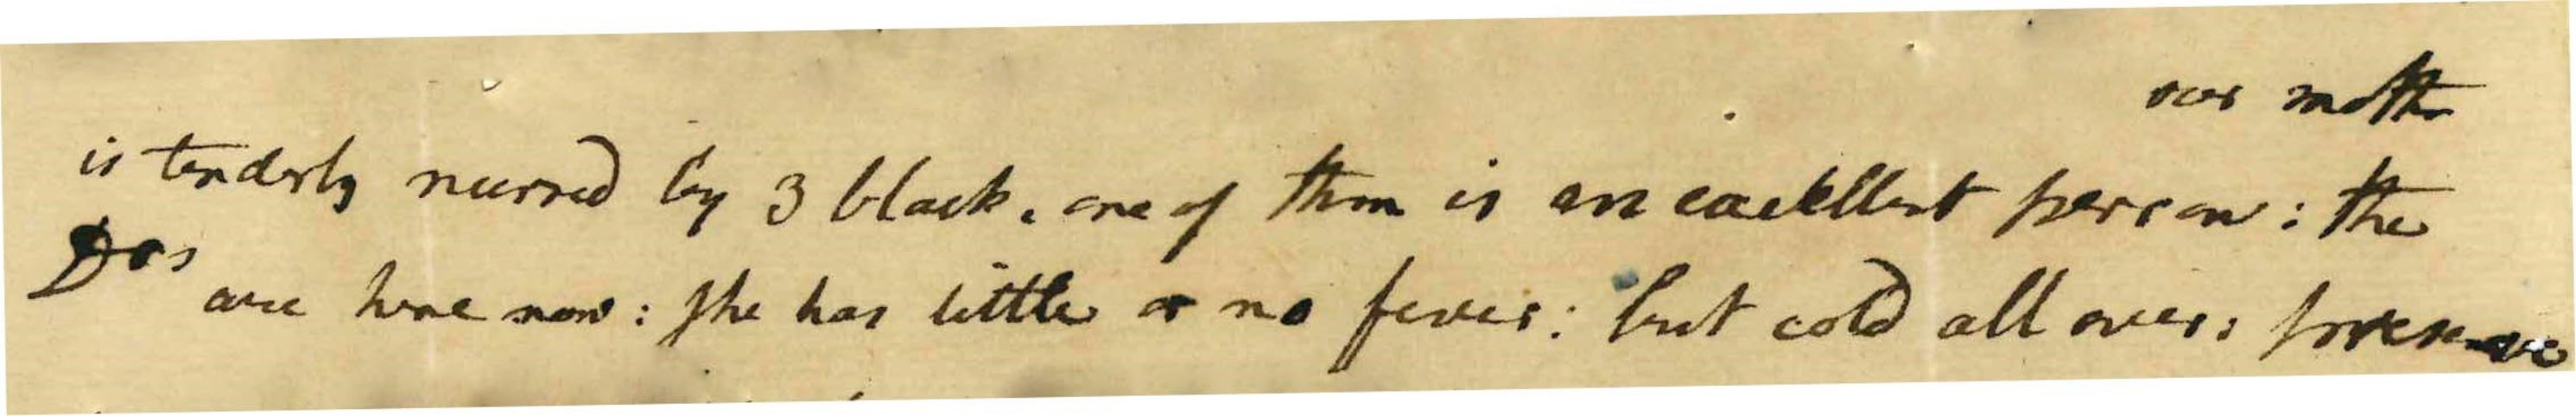 our moth
is tenderly nursed by 3 black. one of them is an excellent person: the
Drs are here now: she has little or no fever: but cold all over: